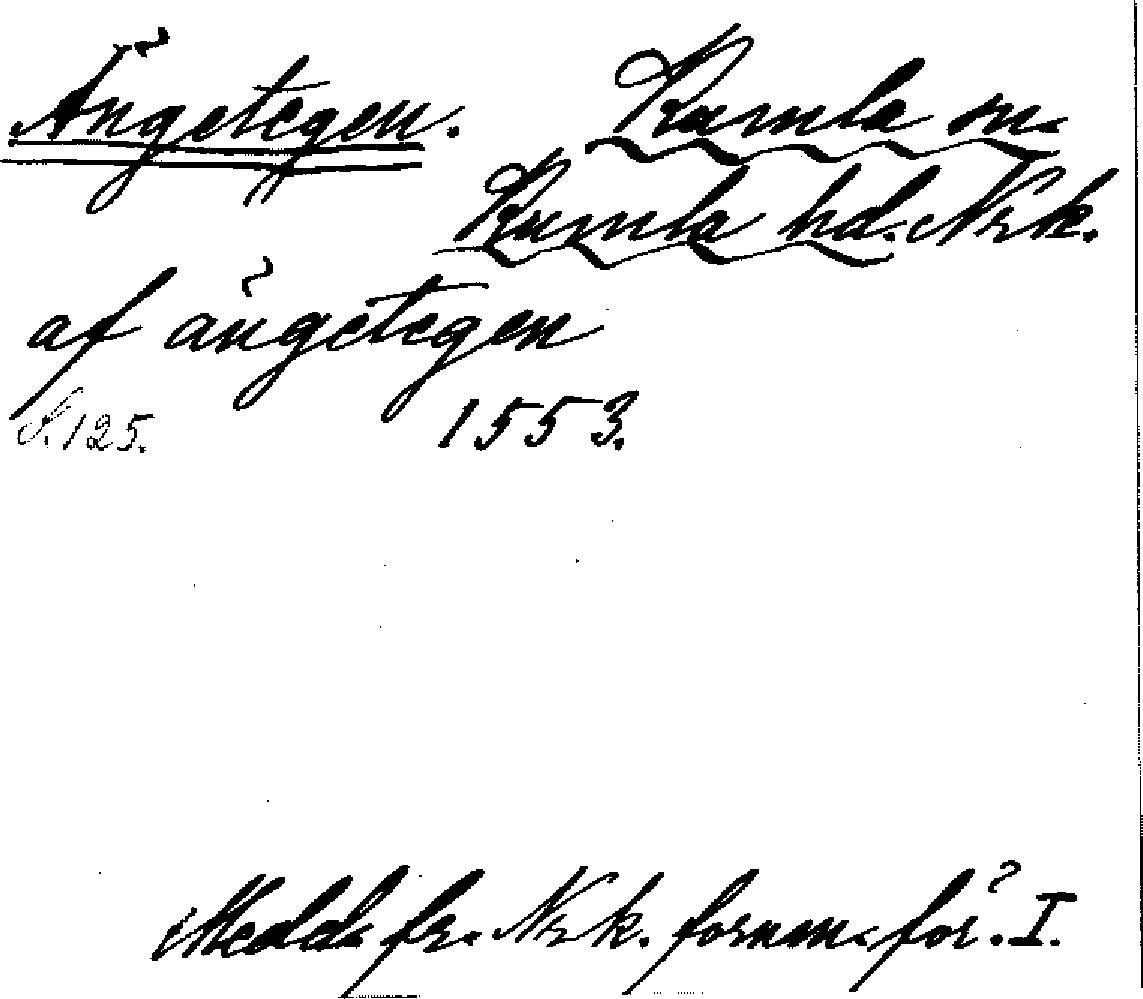 Ängetegen. Kumla sn.
Kumla hd. Nrk.
af ängetegen
S. 125. 1553.
Medd. fr. Nrk. fornm. för. I.